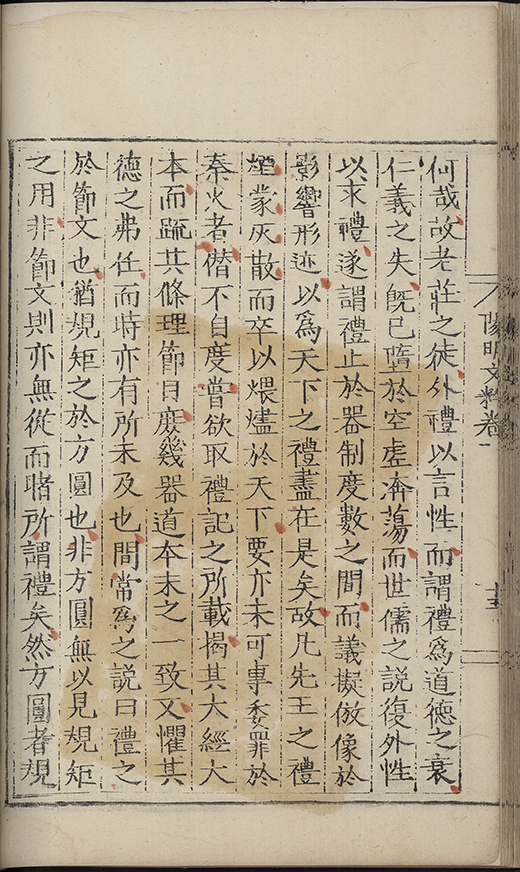 何哉故老莊之徒外禮以言性而謂禮爲道德之衰
仁義之失旣已墮於空虛渀蕩而世儒之說復外性
以求禮遂謂禮止於器制度數之間而議擬倣像於
影響形迹以爲天下之禮盡在是矣故凡先王之禮
煙蒙灰散而卒以煨燼於天下要亦未可專委罪於
秦火者僣不自度嘗欲取禮記之所載揭其大經大
本而疏其條理節目庻幾器道本末之一致又懼其
德之弗任而時亦有所未及也間常爲之說曰禮之
於節文也猶規矩之於方圓也非方圓無以見規矩
之用非節文則亦無從而睹所謂禮矣然方圓者規
陽明文粹卷一
十三